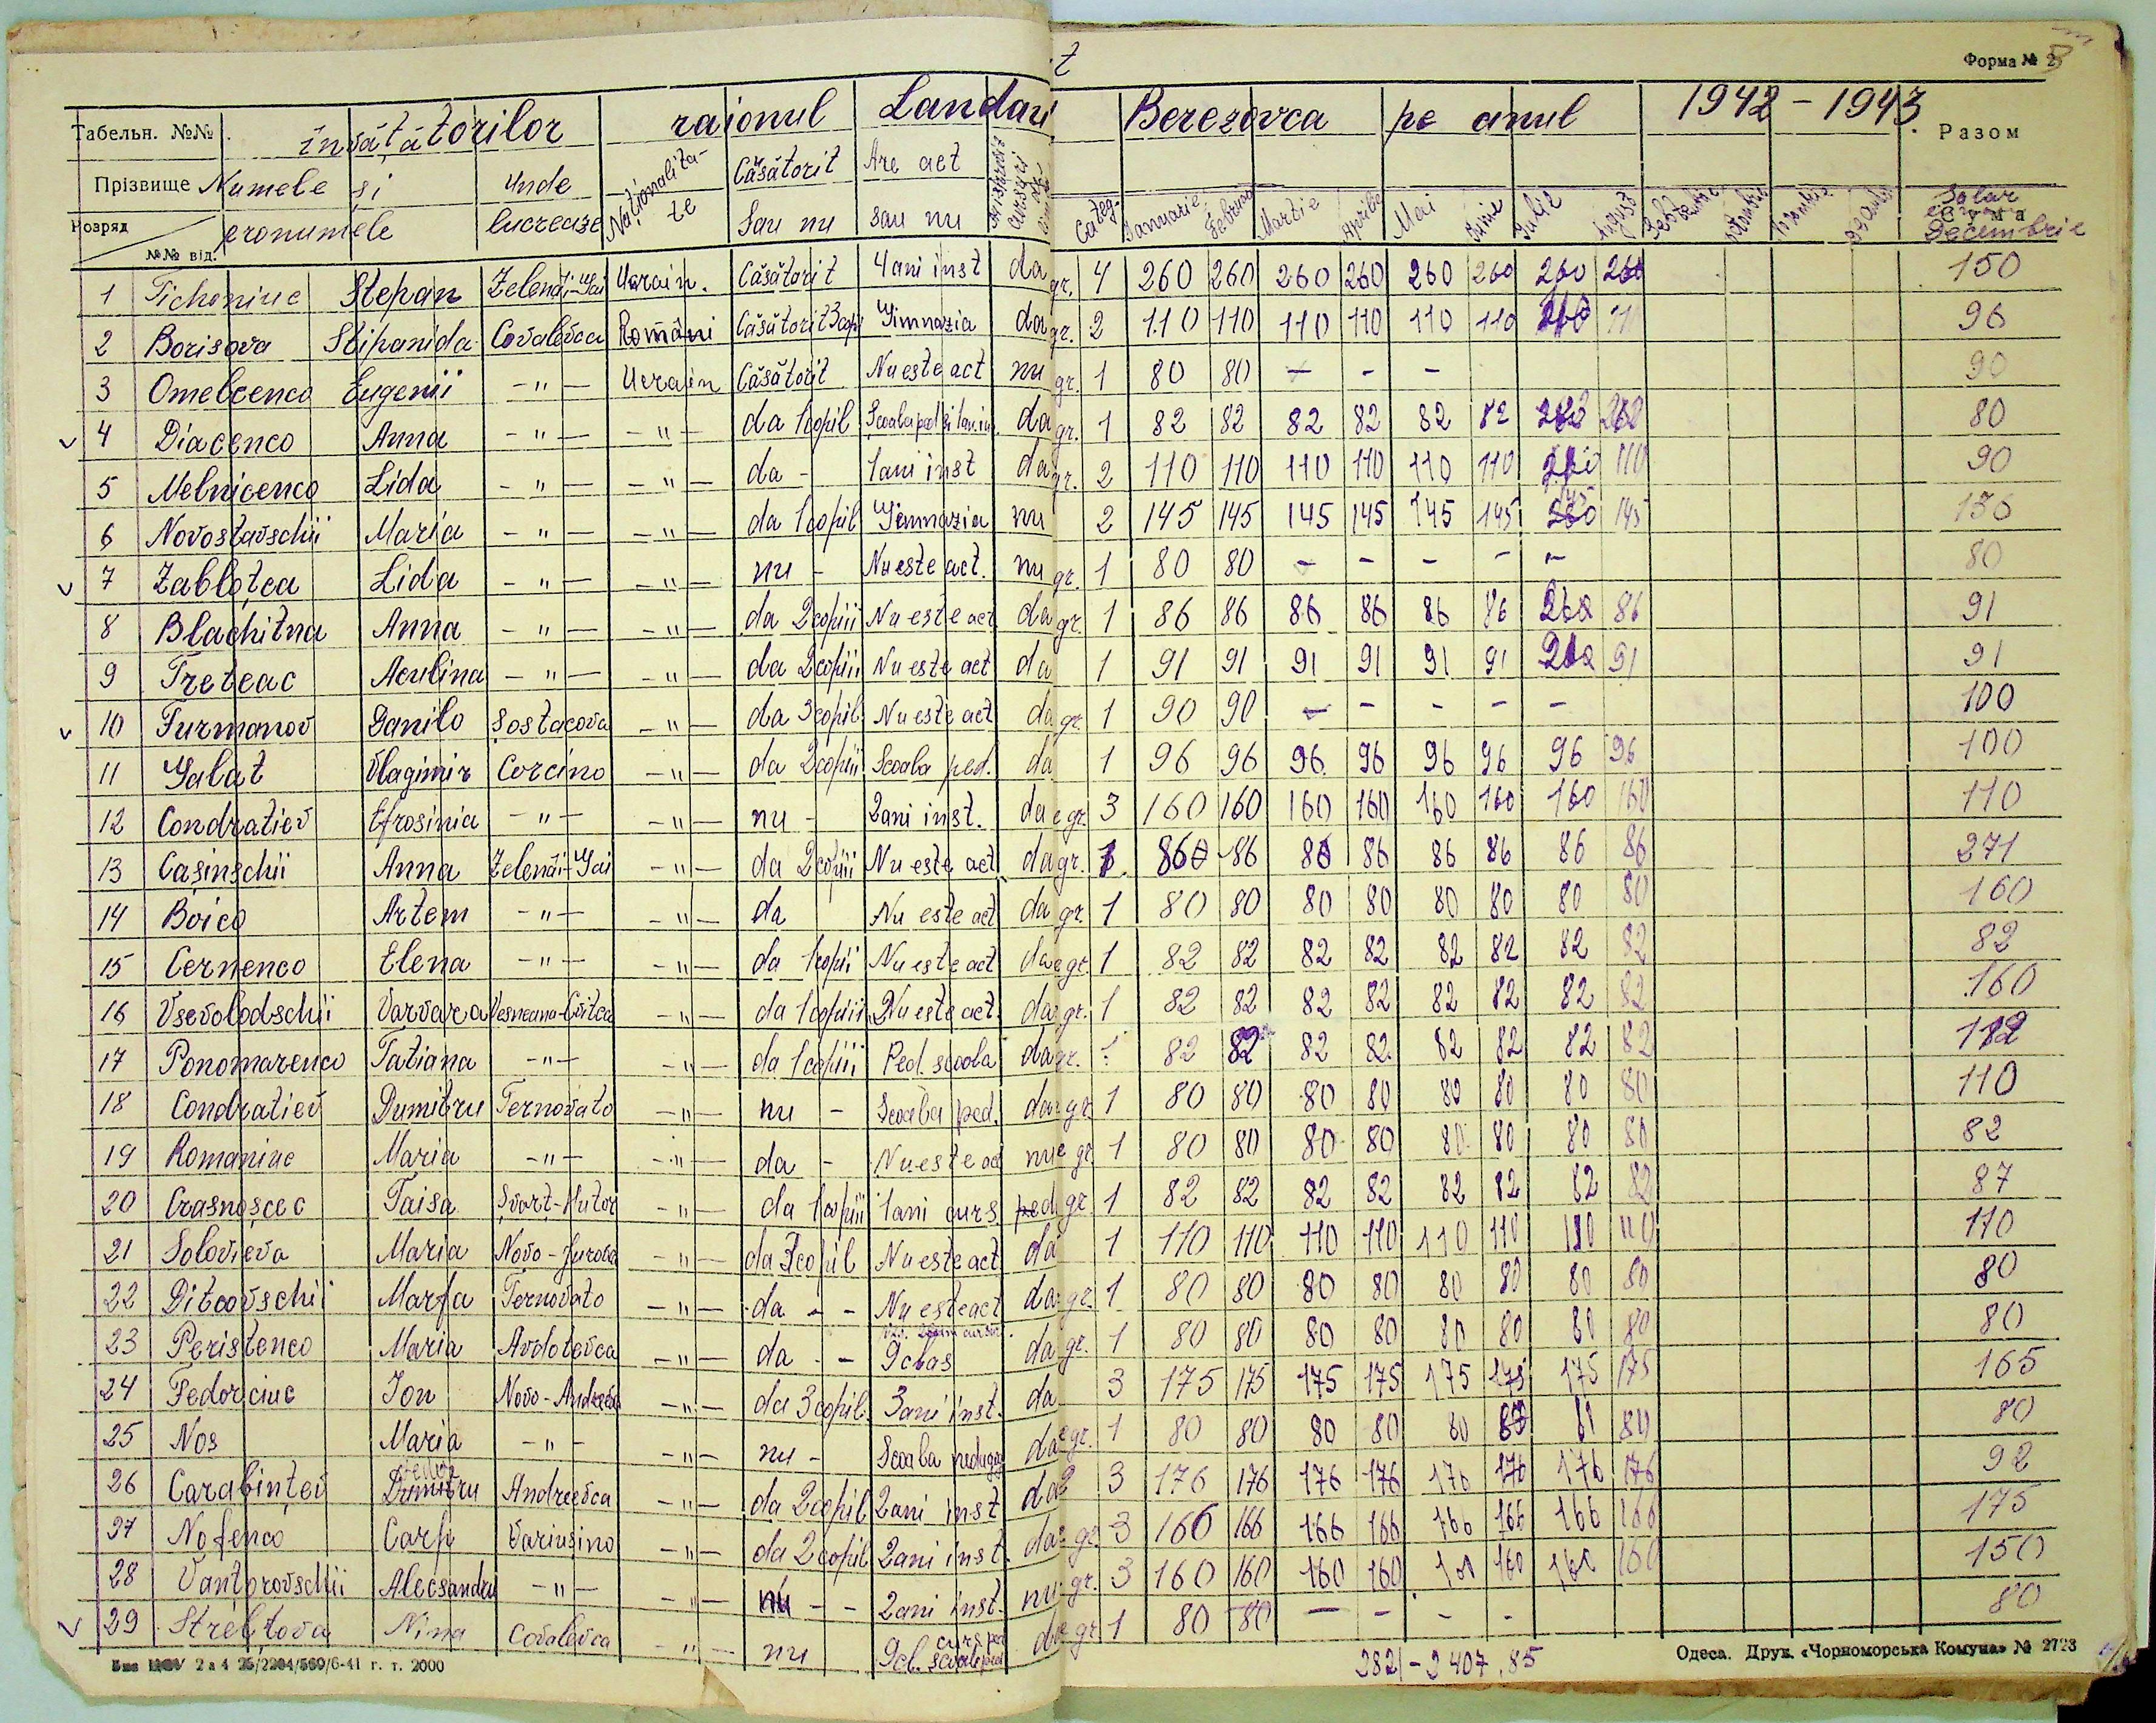 Форма № 2
Табельн. №№ învățătorilor raionul Landau Berezovca pe anul 1942 - 1943. Разом
Прізвище Numele și Unde Naționalita- Căsătorit Are act
Розряд pronumele lucrează te Sau nu sau nu Categ. Ianuarie Februarie Martie Aprilie Mai Iunie Iulie August Solar
№№ від. Сума Decembrie
1 Tichoniuc Stepan Zelenâi-Gai Ucrain. Căsătorit 4 ani inst da gr. 4 260 260 260 260 260 260 260 260 150
2 Borisova Stipanida Covalevca Români Căsătorit 3 cop Gimnazia da gr. 2 110 110 110 110 110 110 110 96
3 Omelcenco Eugenii -"- Ucrain Căsătorit Nu este act nu gr. 1 80 80 - - - 90
v 4 Diacenco Anna -"- -"- da 1 copil Scoala ped da gr. 1 82 82 82 82 82 82 80
5 Melnicenco Lida -"- -"- da - 1 ani inst da gr. 2 110 110 110 110 110 110 110 90
6 Novostavschii Maria -"- -"- da 1 copil Gimnazia nu 2 145 145 145 145 145 145 145 145 136
v 7 Zabloțca Lida -"- -"- nu - Nu este act. nu gr. 1 80 80 - - - - - 80
8 Blachitna Anna -"- -"- da 2 copii Nu este act da gr. 1 86 86 86 86 86 86 86 91
9 Treteac Aculina -"- -"- da 2 copii Nu este act da 1 91 91 91 91 91 91 91 91
v 10 Furmanov Danilo Șostacova -"- da 3 copil Nu este act da gr. 1 90 90 - - - - - 100
11 Galat Vlagimir Corcino -"- da 2 copii Scoala ped. da 1 96 96 96 96 96 96 96 96 100
12 Condrațiev Efrosinia -"- -"- nu - 2 ani inst. da e gr. 3 160 160 160 160 160 160 160 160 110
13 Cașinschii Anna Zelenâi-Gai -"- da 2 copii Nu este act da gr. 1 86 86 86 86 86 86 86 86 271
14 Boico Artem -"- -"- da Nu este act da gr. 1 80 80 80 80 80 80 80 80 160
15 Cernenco Elena -"- -"- da 1 copii Nu este act da e gr. 1 82 82 82 82 82 82 82 82 82
16 Vsevolodschii Varvara Vesneana-Cvitca -"- da 1 copiii Nu este act. da gr. 1 82 82 82 82 82 82 82 82 160
17 Ponomarenco Tatiana -"- -"- da 1 copiii Ped. scoala da gr. 1 82 82 82 82 82 82 82 82 112
18 Condrațiev Dumitru Ternovato -"- nu - Scoala ped. da gr. 1 80 80 80 80 80 80 80 80 110
19 Romaniuc Maria -"- -"- da - Nu este act nu e gr. 1 80 80 80 80 80 80 80 80 82
20 Crasnoșcec Taisa Șvarț-Hutor -"- da 1 copiii 1 ani curs. ped gr. 1 82 82 82 82 82 82 82 82 87
21 Solovieva Maria Novo-Jurova -"- da 3 copil Nu este act da 1 110 110 110 110 110 110 110 110 110
22 Ditcovschii Marfa Ternovato -"- da - - Nu este act da gr. 1 80 80 80 80 80 80 80 80 80
23 Peristenco Maria Avdotevca -"- da - - 9 clas da gr. 1 80 80 80 80 80 80 80 80 80
24 Fedorciuc Ion Novo-Andreevca -"- da 3 copil. 3 ani inst. da 3 175 175 175 175 175 175 175 175 165
25 Nos Maria -"- -"- nu - Scoala pedagog da e gr. 1 80 80 80 80 80 80 81 80 80
26 Carabințev Dumitru Andreevca -"- da 2 copil 2 ani inst da 3 176 176 176 176 176 176 176 176 92
27 Nofenco Carp Variușino -"- da 2 copil 2 ani inst. da gr. 3 166 166 166 166 166 166 166 166 175
28 Vantorovschii Alecsandru -"- -"- nu - - 2 ani inst. nu gr. 3 160 160 160 160 160 160 160 150
v 29 Strelțova Nina Covalevca -"- nu 9 cl. scoale ped da e gr. 1 80 80 - - - - 80
2 а 4 25/2204/569/6-41 г. т. 2000
Одеса. Друк. «Чорноморська Комуна» № 2723